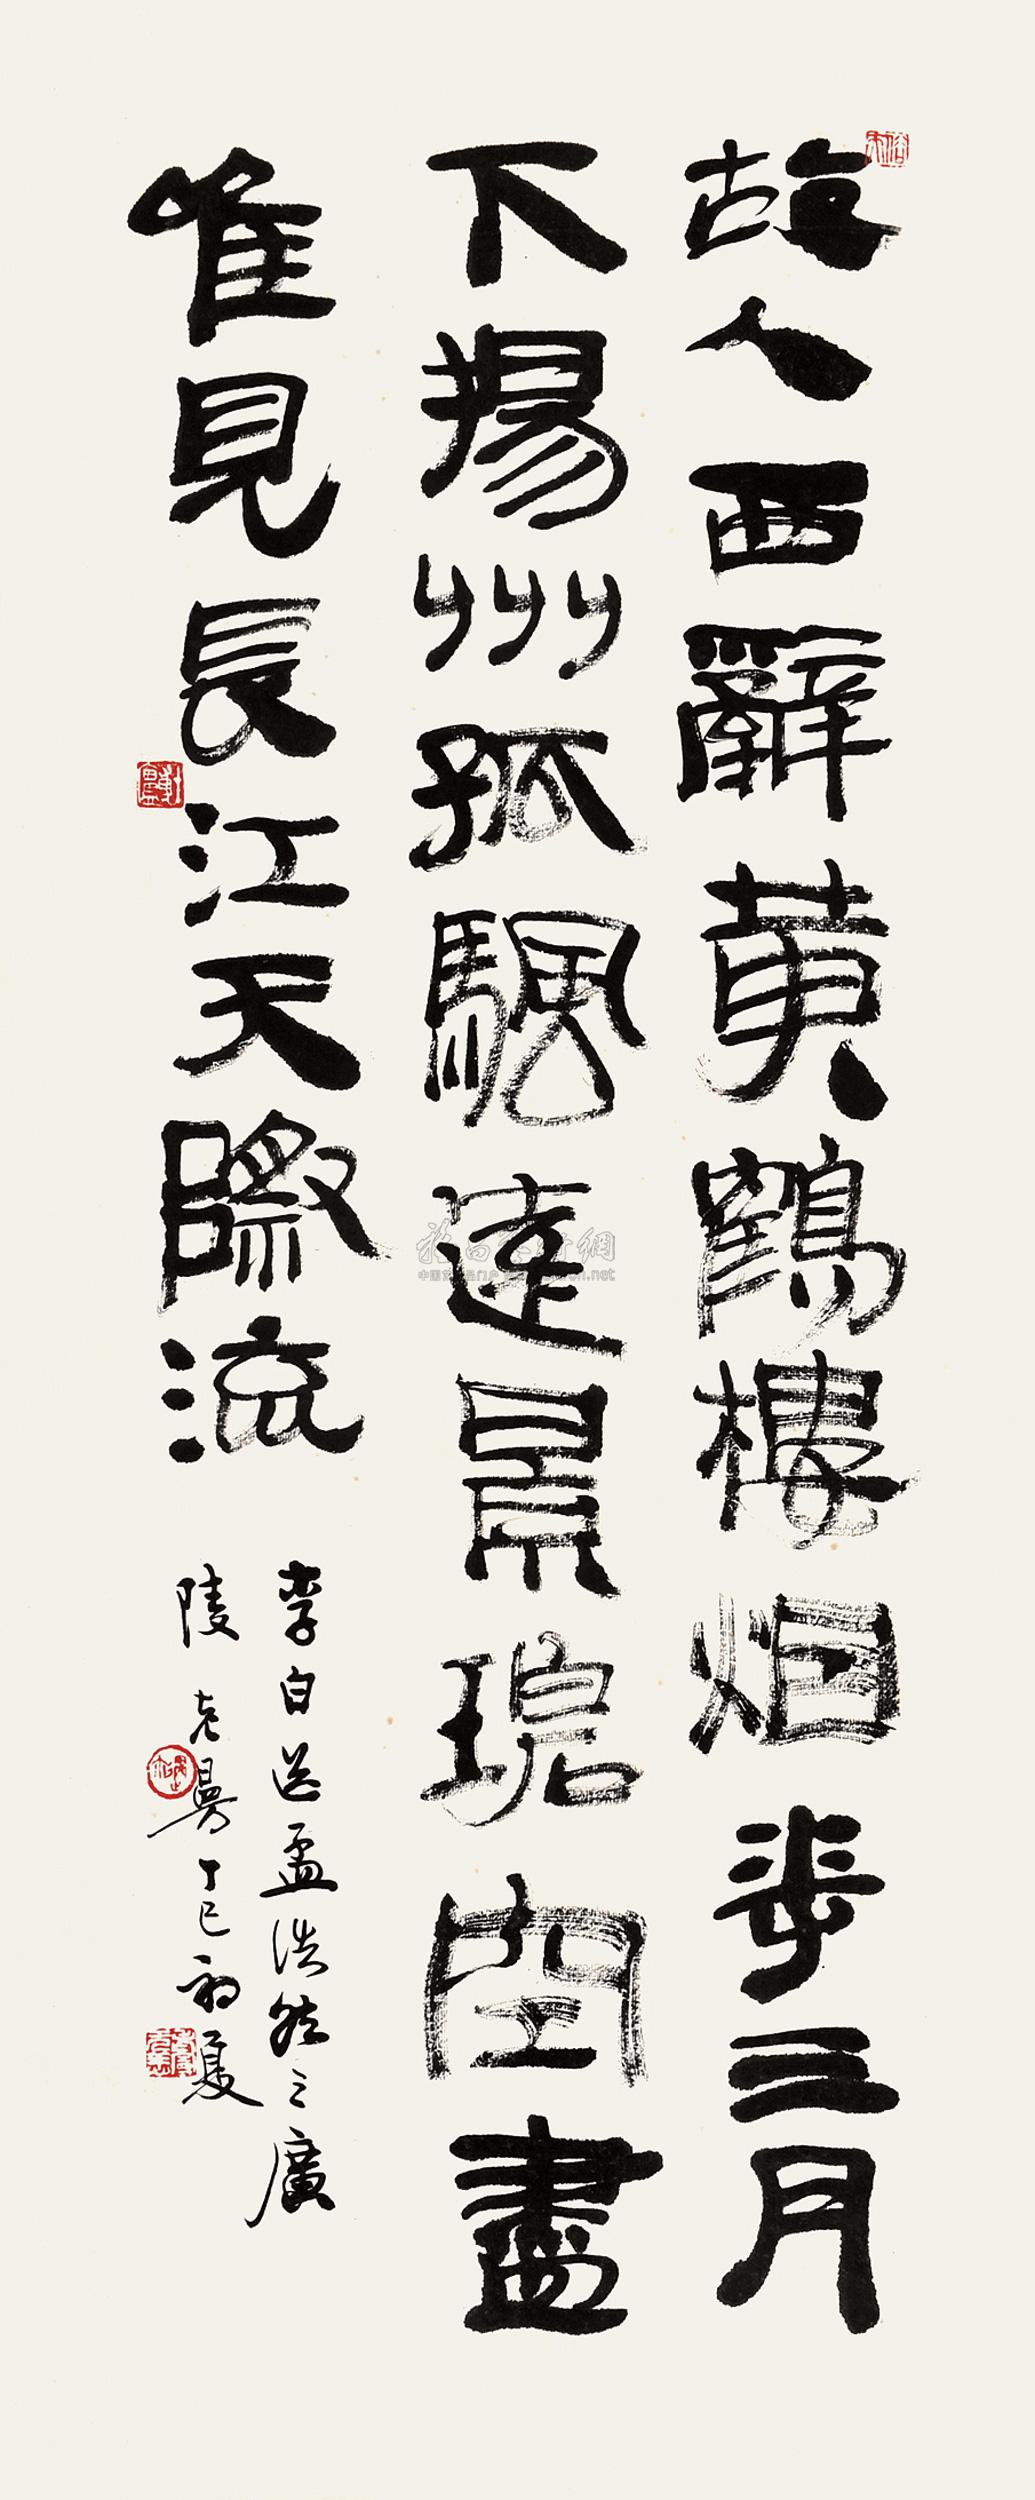 故人西辭黃鶴樓烟華三月
下揚州孤颿遠景碧空盡
唯見長江天際流
李白送孟浩然之廣
陵 丁巳初夏